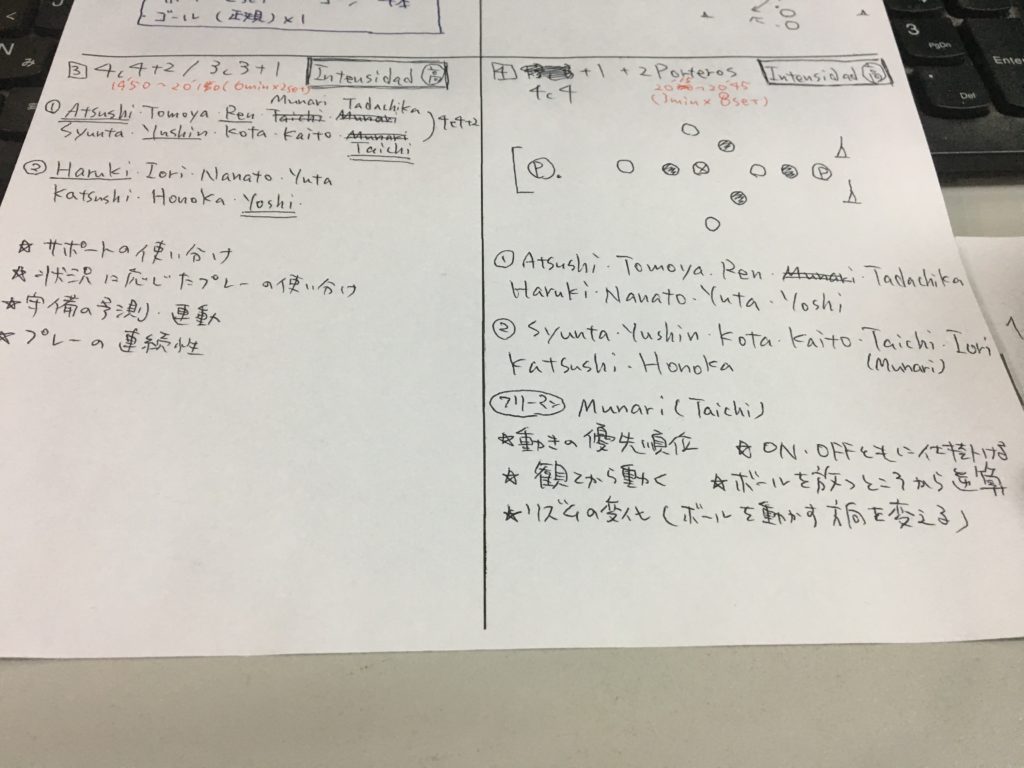 ゴール (正規) × 1
3 4c4+2 / 3c3+1 Intensidad 高
Munari Tadachika
① Atsushi・Tomoya・Ren・Taichi・Munari
Syunta・Yushin・Kota・Kaito・Munari
Taichi
4c4+2
② Haruki・Iori・Nanato・Yuta
Katsushi・Honoka・Yoshi.
☆ サポートの使い分け
☆ 状況に応じたプレーの使い分け
☆ 守備の予測・連動
☆ プレーの連続性
4 +1 +2 Porteros Intensidad 高
4c4
(3min × 8set)
P
P
① Atsushi・Tomoya・Ren・Munari・Tadachika
Haruki・Nanato・Yuta・Yoshi
② Syunta・Yushin・Kota・Kaito・Taichi・Iori
Katsushi・Honoka (Munari)
フリーマン Munari (Taichi)
☆動きの優先順位 ☆ON・OFFともに仕掛ける
☆ 観てから動く ☆ボールを放つところから逆算
☆リズムの変化 (ボールを動かす方向を変える)
N
み
3
PgDn
Enter
Del